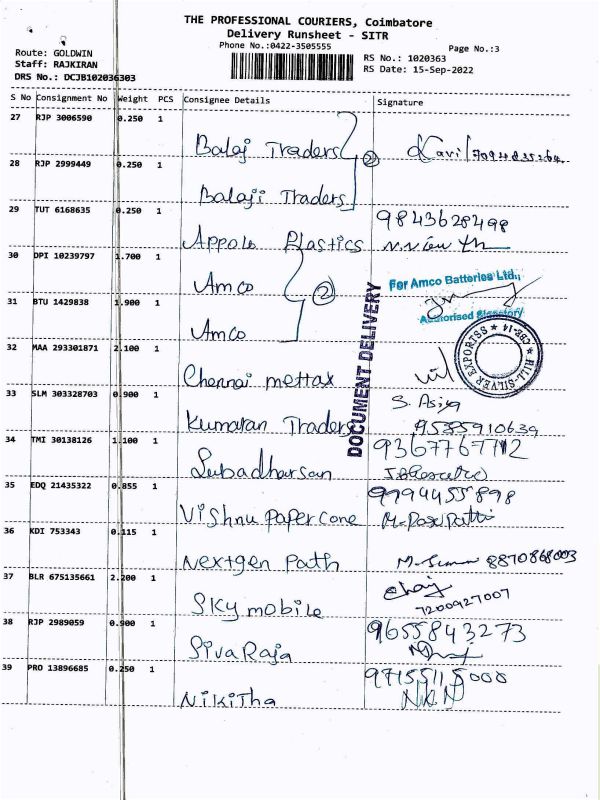 THE PROFESSIONAL COURIERS, Coimbatore
Delivery Runsheet - SITR
Phone No.:0422-3505555
Page No.:3
Route: GOLDWIN
Staff: RAJKIRAN
DRS No.: DCJB102036303
RS No.: 1020363
RS Date: 15-Sep-2022
S No Consignment No Weight PCS Consignee Details Signature
27 RJP 3006590 0.250 1
Balaj Traders Kavi
28 RJP 2999449 0.250 1 2
Balaji Traders
29 TUT 6168635 0.250 1 9843628498
Appolo Plastics
30 DPI 10239797 1.700 1
For Amco Batteries Ltd.,
Amco 2
Authorised Signatory
31 BTU 1429838 1.900 1
Amco
DOCUMENT DELIVERY
HILL-SILVER EXPORTSS ★ CBE-14 ★
32 MAA 293301871 2.100 1
Chennai mettax
33 SLM 303328703 0.900 1 S. Asiya
Kumaran Traders 9535910639
34 TMI 30138126 1.100 1
Subadharsan
35 EDQ 21435322 0.855 1 9994455898
Vishnu Paper cone
36 KDI 753343 0.115 1
Nextgen Path 8870868003
37 BLR 675135661 2.200 1
Sky mobile 7200927007
38 RJP 2989059 0.900 1 9655843273
Siva Raja
39 PRO 13896685 0.250 1
Nikitha